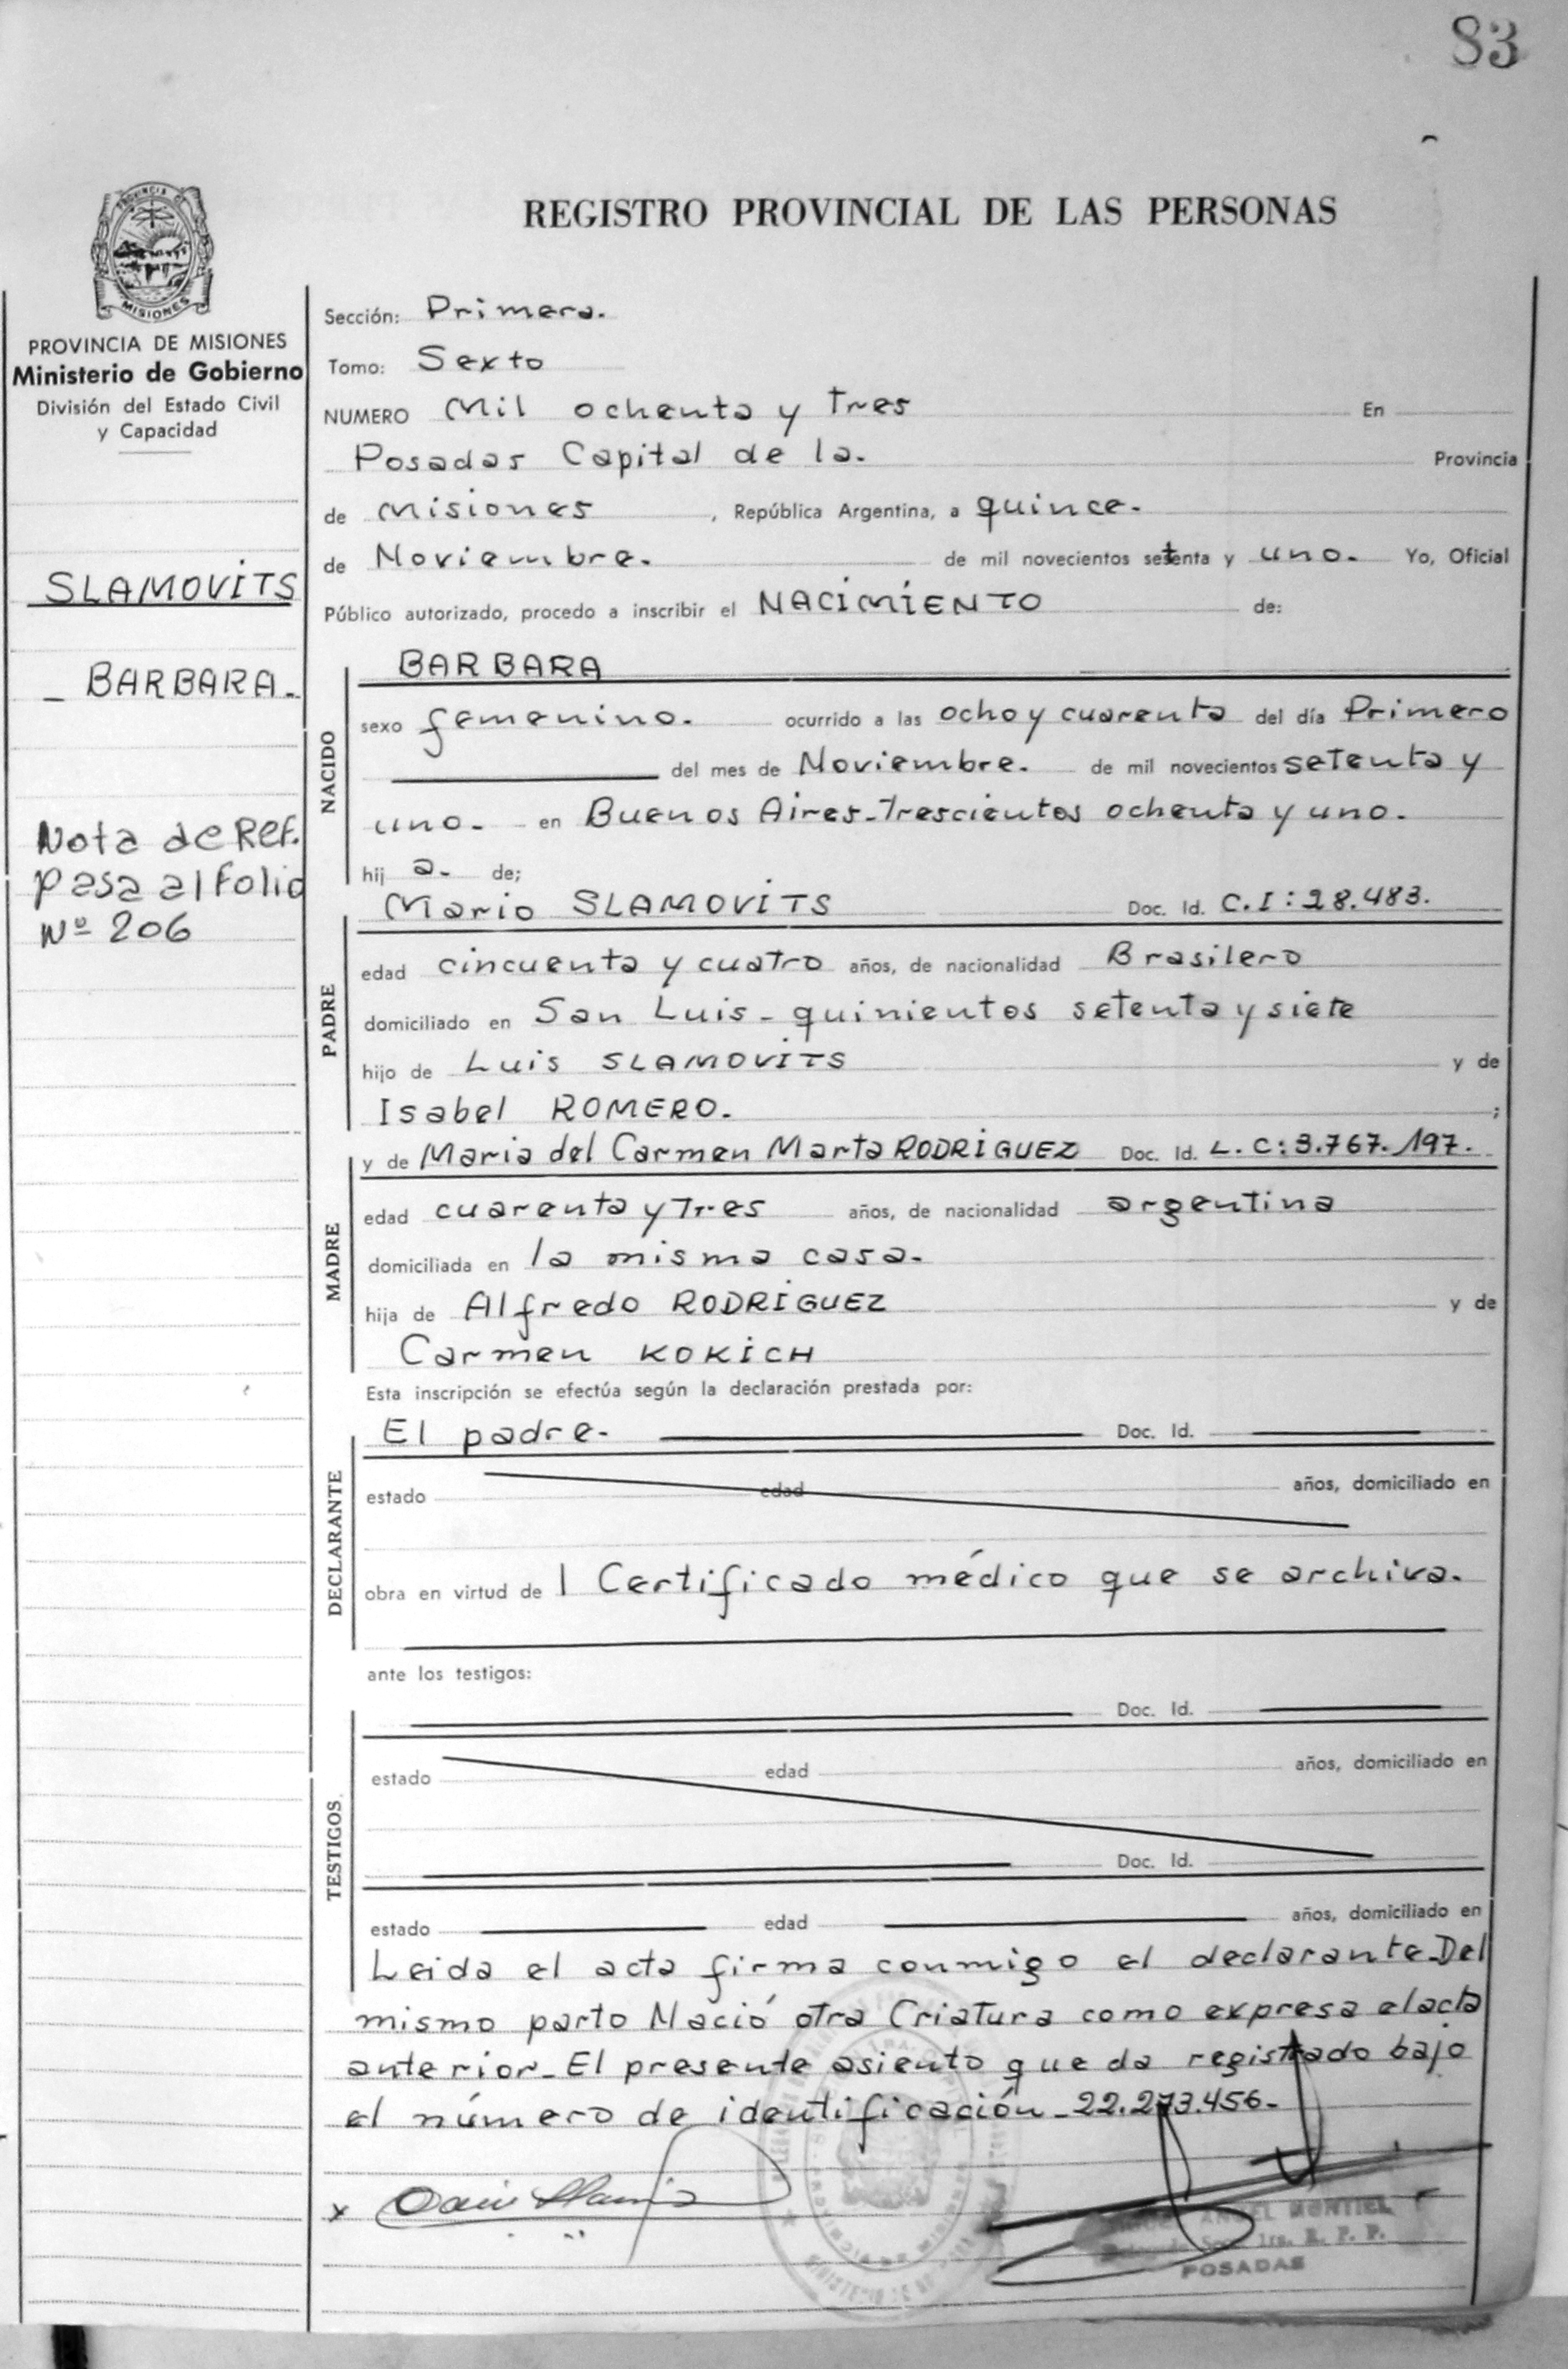 83
PROVINCIA D
MISIONES
REGISTRO PROVINCIAL DE LAS PERSONAS
PROVINCIA DE MISIONES
Ministerio de Gobierno
División del Estado Civil
y Capacidad
SLAMOVITS
_ BARBARA_
Nota de Ref.
pasa al Folio
Nº 206
Sección: Primera.
Tomo: Sexto
NUMERO Mil ochenta y Tres En
Posadas Capital de la. Provincia
de Misiones , República Argentina, a quince.
de Noviembre. de mil novecientos setenta y uno. Yo, Oficial
Público autorizado, procedo a inscribir el NACIMIENTO de:
NACIDO
BARBARA
sexo femenino. ocurrido a las ocho y cuarenta del día Primero
del mes de Noviembre. de mil novecientos setenta y
uno. en Buenos Aires-Trescientos ochenta y uno.
hij a. de;
PADRE
Mario SLAMOVITS Doc. Id. C.I:28.483.
edad cincuenta y cuatro años, de nacionalidad Brasilero
domiciliado en San Luis - quinientos setenta y siete
hijo de Luis SLAMOVITS y de
Isabel ROMERO. ;
MADRE
y de Maria del Carmen Marta RODRIGUEZ Doc. Id. L.C:3.767.197.
edad cuarenta y Tres años, de nacionalidad argentina
domiciliada en la misma casa.
hija de Alfredo RODRIGUEZ y de
Carmen KOKICH
Esta inscripción se efectúa según la declaración prestada por:
DECLARANTE
El padre. Doc. Id.
estado edad años, domiciliado en
obra en virtud de 1 Certificado médico que se archiva.
ante los testigos:
TESTIGOS
Doc. Id.
estado edad años, domiciliado en
Doc. Id.
estado edad años, domiciliado en
Leida el acta firma conmigo el declarante_Del
mismo parto Nació otra Criatura como expresa el acta
anterior_El presente asiento queda registrado bajo
el número de identificación_22.273.456-
x
ANGEL MONTIEL
R. P. P.
POSADAS